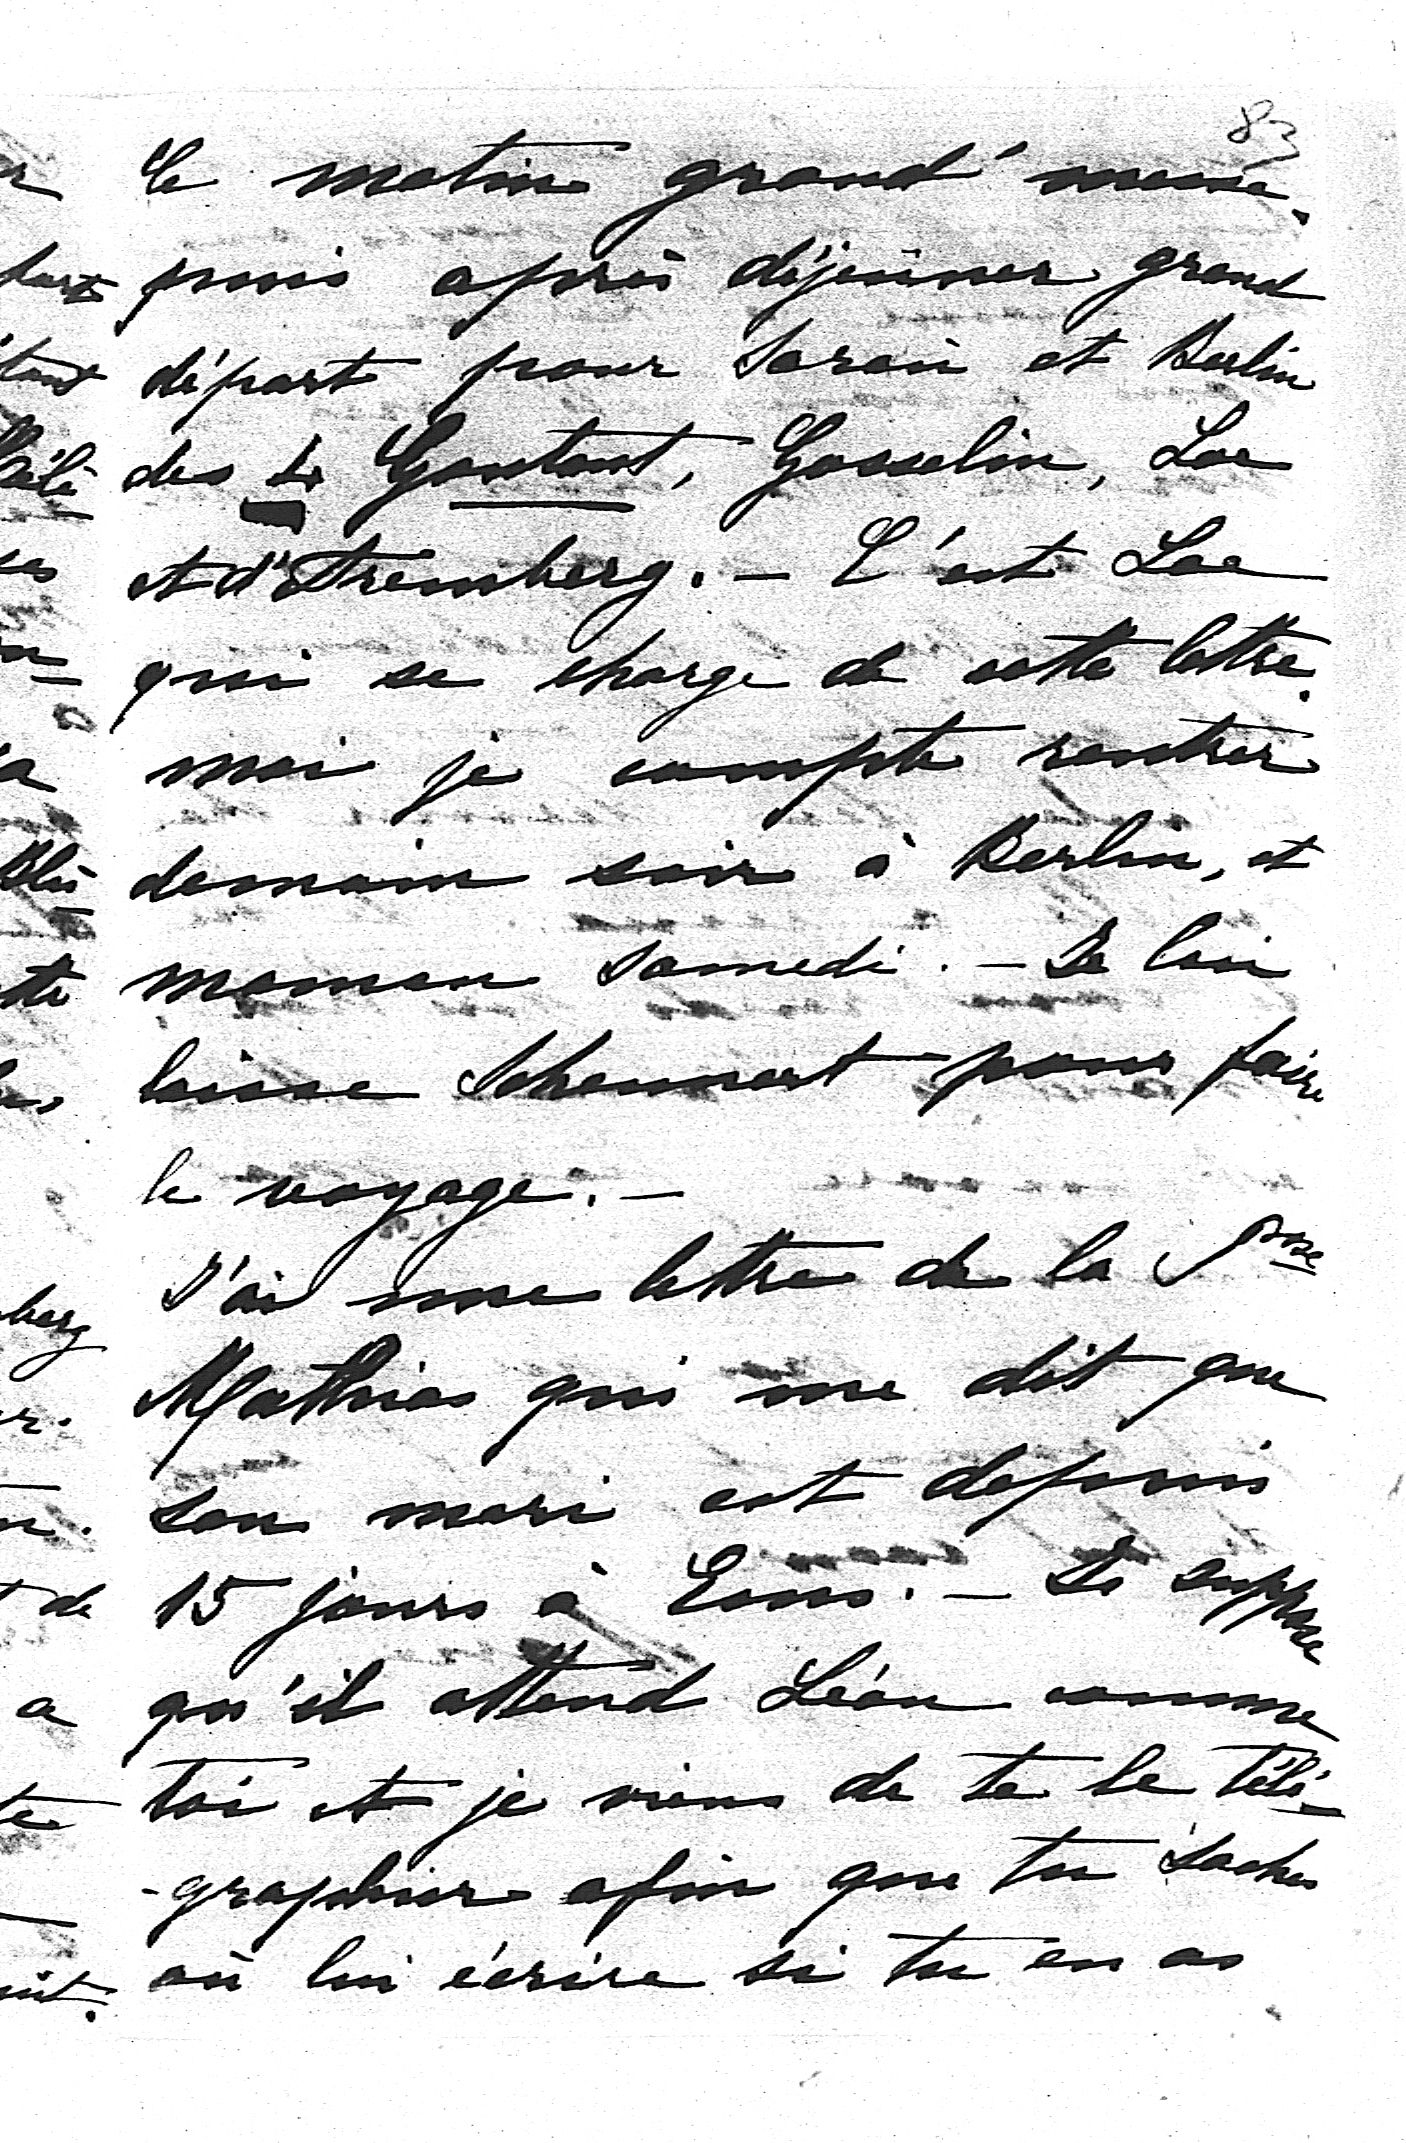 83
Ce matin grand' messe.
puis après déjeuner grand
départ pour Saran et Berlin
des 4 Gontaut, Gosselin, Loe
et d'Stremberg. – C'est Loe
qui se charge de cette lettre.
moi je compte rentrer
demain soir à Berlin, et
maman samedi. – Je lui
laisse Schennert pour faire
le voyage. –
J'ai une lettre de la Psse
Mathias qui me dit que
son mari est depuis
15 jours à Ems. – Je suppose
qu'il attend Léon comme
toi et je viens de te le télé-
-graphier afin que tu saches
où lui écrire si tu en as